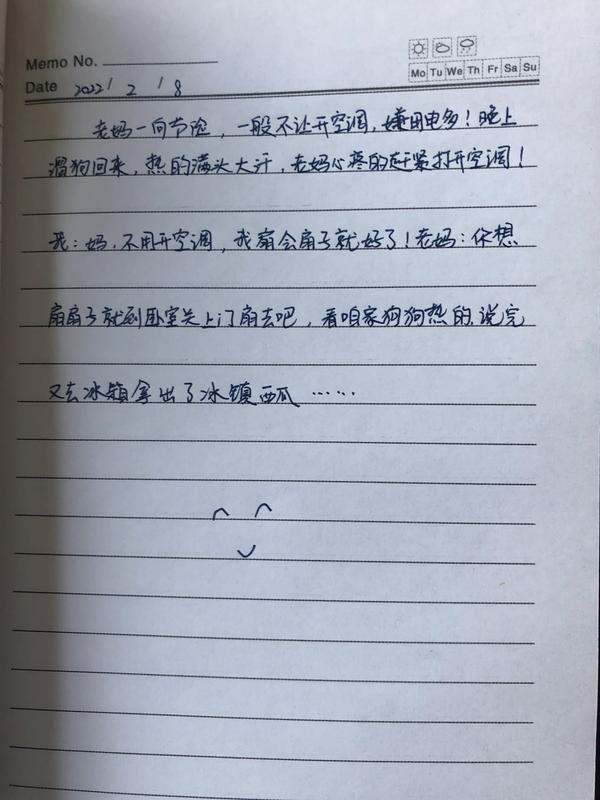 Memo No.
Mo Tu We Th Fr Sa Su
Date 2022 / 2 / 8
老妈一向节俭，一般不让开空调，嫌用电多！晚上
溜狗回来，热的满头大汗，老妈心疼的赶紧打开空调！
我：妈，不用开空调，我扇会扇子就好了！老妈：你想
扇扇子就到卧室关上门扇去吧，看咱家狗狗热的.说完
又去冰箱拿出了冰镇西瓜……